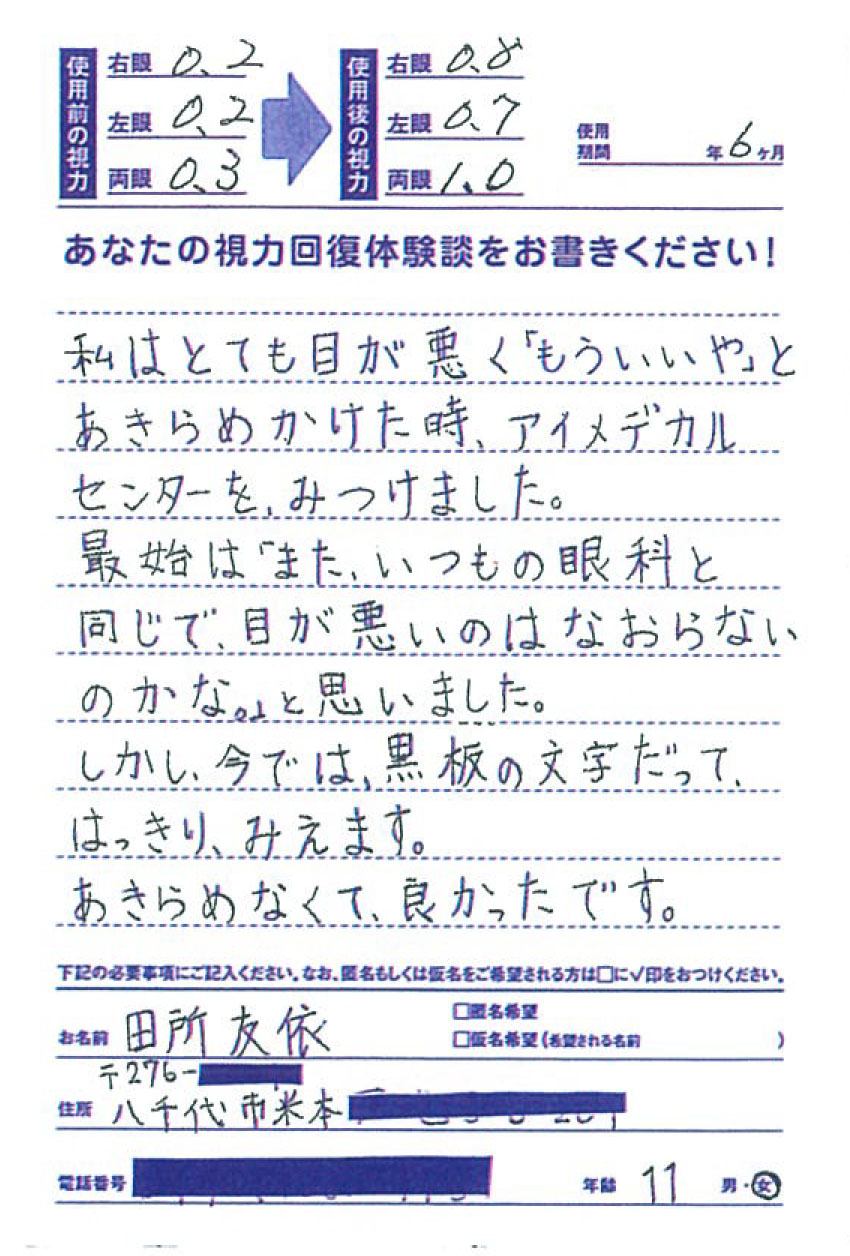 使用前の視力
右眼 0.2
左眼 0.2
両眼 0.3
使用後の視力
右眼 0.8
左眼 0.7
両眼 1.0
使用期間 年 6ヶ月
あなたの視力回復体験談をお書きください!
私はとても目が悪く「もういいや」と
あきらめかけた時、アイメデカル
センターを、みつけました。
最始は「また、いつもの眼科と
同じで、目が悪いのはなおらない
のかな。」と思いました。
しかし、今では、黒板の文字だって、
はっきり、みえます。
あきらめなくて、良かったです。
下記の必要事項にご記入ください。なお、匿名もしくは仮名をご希望される方は□に✓印をおつけください。
お名前 田所友依
□匿名希望
□仮名希望(希望される名前 )
〒276-
住所 八千代市米本
電話番号
年齢 11 男・女